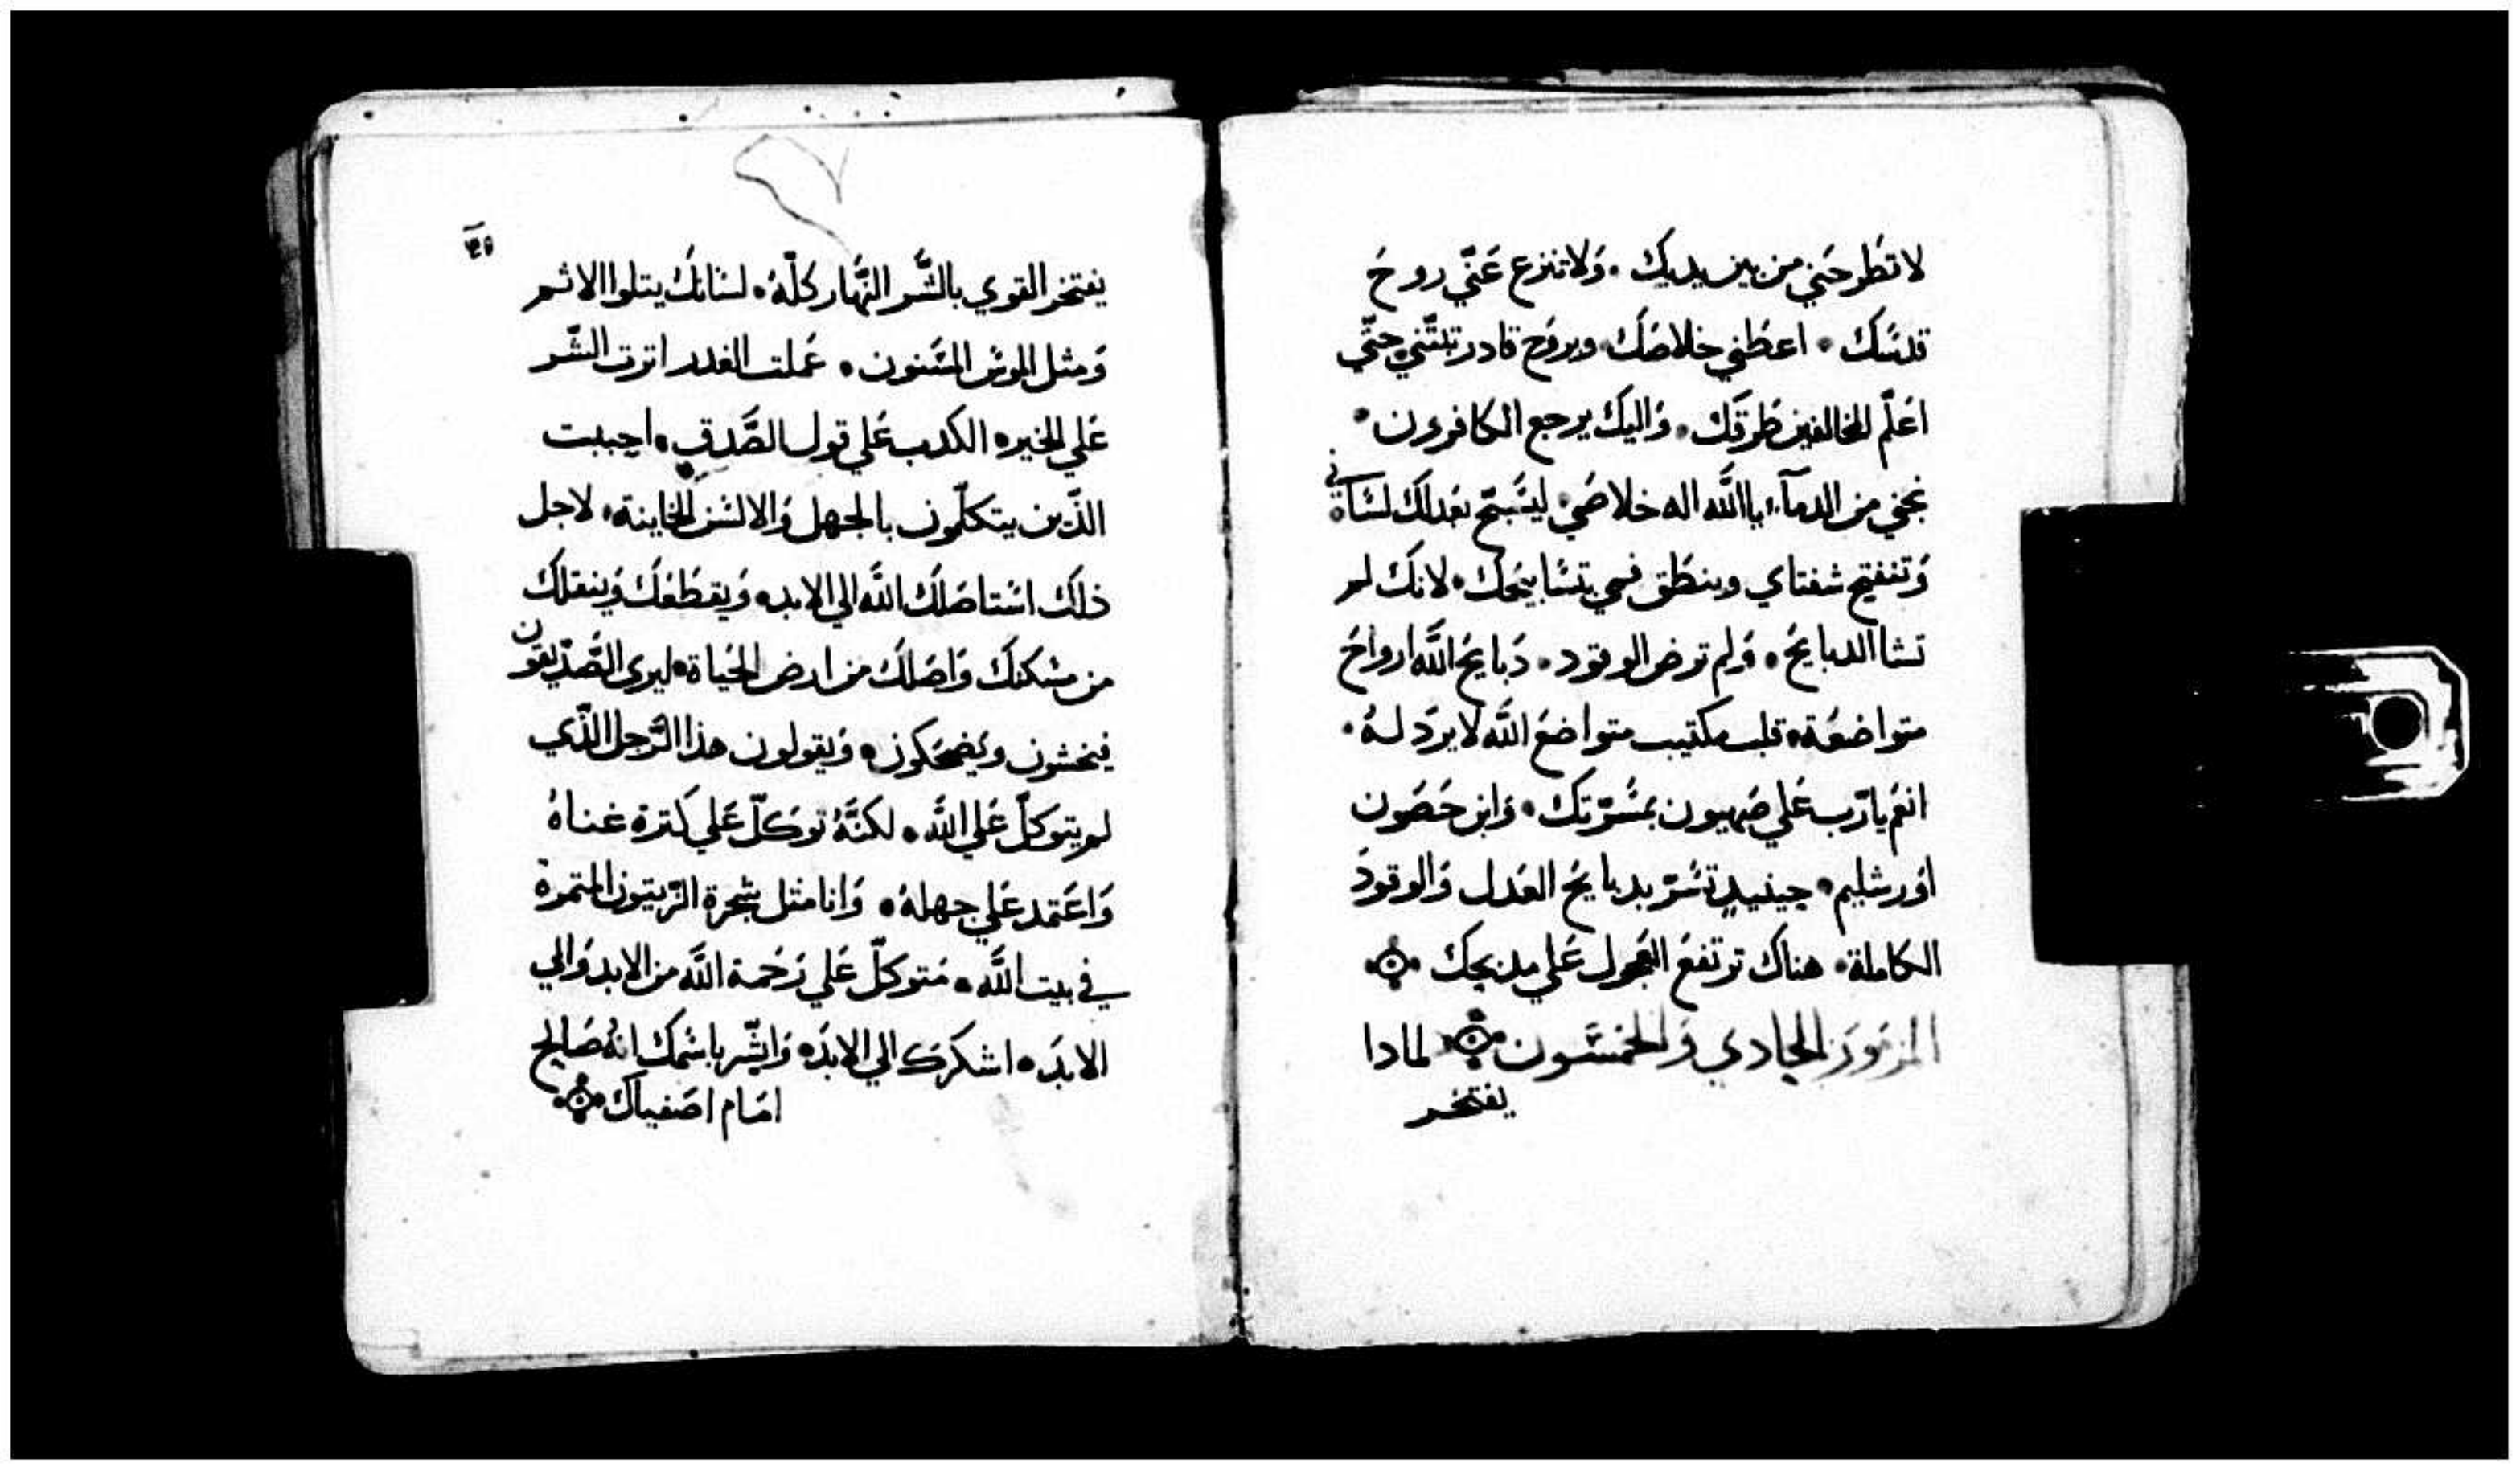 لا تطرحني من بين يديك • وَلا تنزع عَنّي روحَ
قدسَك • اعطني خلاصَك وبروَح قادر تبتّني حتّي
اعَلّم المخالفين طرقَك • وَاليكَ يرجع الكافرون •
نجني من الدمآء ياالله اله خلاصَي • ليسَبّح بعَدلك لسَاني •
وَتنفتح شفتاي وينطَق فمي بتسَابيحَك • لانكَ لم
تشا الدبايحَ • وَلم ترض الوقود • دَبايحَ الله ارواحَ
متواضعَة • قلب مكتيب متواضعَ الله لا يردّ لهُ •
انعَم يا رَّب عَلي صَهيون بمسَرّتك • وَابن حَصَون
اوَرشليم • حينيدٍ تسَرّ بدبايحَ العَدل وَالوقودَ
الكاملة • هناك ترتفعَ العَجول عَلي مدبحك
المزمَور الحَادي وَالخمسَون لمادا
يفتخر
٤٥
يفتخر القوي بالشَّر النَّهار كلّهُ • لسَانكَ يتلوا الاثم
وَمثل الموسَ المسَنون • عَملت الغدر اترت الشّر
عَلي الخير • الكدب عَلي قول الصَّدق • احببت
الذّين يتكلّمون بالجهل وَالالسَن الخاينة • لاجل
ذلكَ استاصَلكَ الله الي الابد • وَيقطَعَكَ وَينقلكَ
من مسَكنكَ وَاصَلكَ من ارض الحَياة • ليري الصَّدّيقَون
فيخشون ويَضحَكون • وَيقولون هذا الرَّجل الذّي
لم يتوكلّ عَلي الله • لكنَّهُ توَكلّ عَلي كترة غناهُ
وَاعَتمد عَلي جهلهُ • وَانا مثل شجرة الزّيتون المتمرة
في بيت الله • مَتوكلّ عَلي رَحَمة الله من الابد وَالي
الابدَ • اشكرَك الي الابدَ • وَابشّر باسَمك انهُ صَالح
امَام اصَفياك